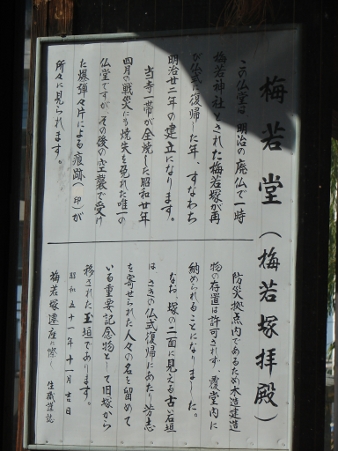 梅若堂(梅若塚拝殿)
この仏堂は 明治の廃仏で一時
梅若神社とされた梅若塚が再
び仏式に復帰した年、すなわち
明治廿二年の建立になります。
当寺一帯が全焼した昭和廿年
四月の戦災にも焼失を免れた唯一の
仏堂ですが その後の空襲で受け
た爆弾々片による痕跡(印)が
所々に見られます。
防災拠点内であるため木造建造
物の存置は許可されず、覆堂内に
納められることになりました。
なお 塚の二面に見える古い石垣
は さきの仏式復帰にあたり芳志
を寄せられた人々の名を留めて
いる重要記念物として旧塚から
移された玉垣であります。
昭和五十一年十一月吉日
梅若塚遷座の際 住職謹誌